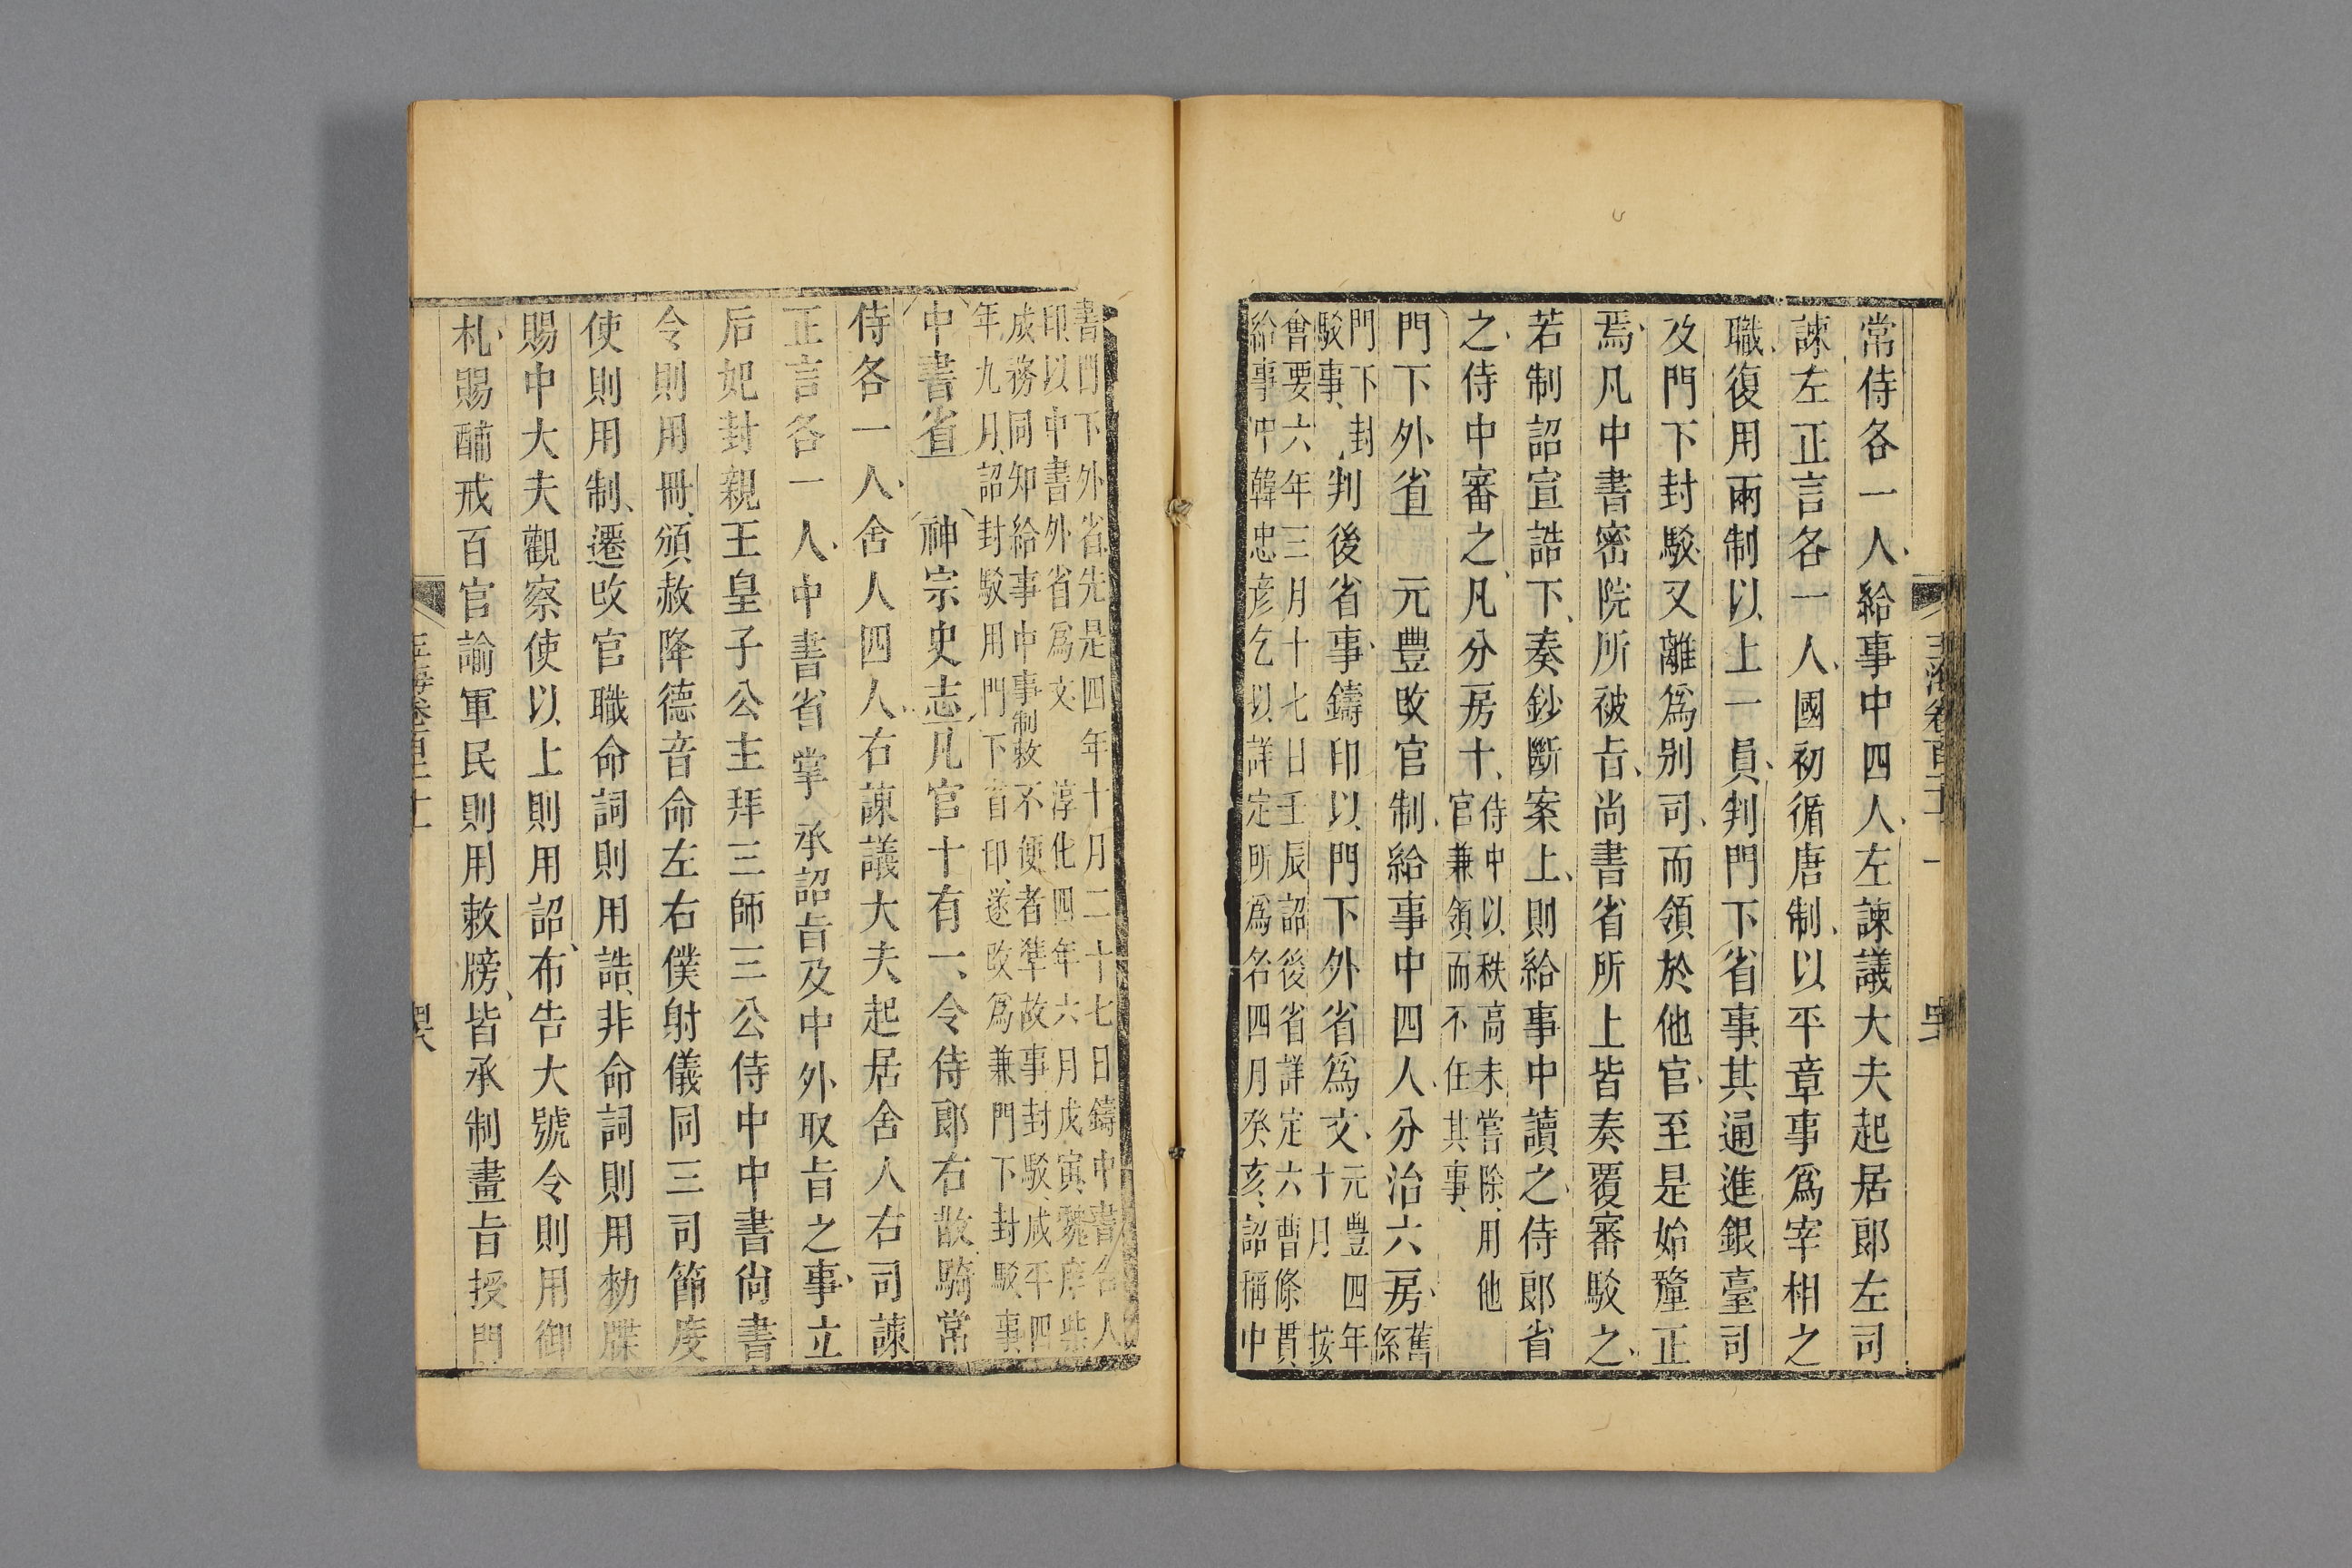 常侍各一人給事中四人左諫議大夫起居郎左司
諫左正言各一人國初循唐制以平章事爲宰相之
職復用兩制以上一員判門下省事其通進銀臺司
及門下封駁又離爲别司而領於他官至是始釐正
焉凡中書密院所被㫖尚書省所上皆奏覆審駁之
若制詔宣誥下奏鈔斷案上則給事中讀之侍郎省
之侍中審之凡分房十侍中以秩高未嘗除用他
官兼領而不任其事
門下外省 元豐改官制給事中四人分治六房舊係
門下封駁事判後省事鑄印以門下外省爲文元豐四年十月按
會要六年三月十七日壬辰詔後省詳定六曹條貫
給事中韓忠彦乞以詳定所爲名四月癸亥詔稱中
書門下外省先是四年十月二十七日鑄中書舍人
印以中書外省爲文 淳化四年六月戊寅魏庠柴
成務同知給事中事制敕不便者準故事封駁咸平四
年九月詔封駁用門下省印遂改爲兼門下封駁事
中書省 神宗史志凡官十有一令侍郎右散騎常
侍各一人舍人四人右諫議大夫起居舍人右司諫
正言各一人中書省掌承詔㫖及中外取㫖之事立
后妃封親王皇子公主拜三師三公侍中中書尚書
令則用冊頒赦降德音命左右僕射儀同三司節度
使則用制遷改官職命詞則用誥非命詞則用勑牒
賜中大夫觀察使以上則用詔布告大號令則用御
札賜酺戒百官諭軍民則用敕牓皆承制畫㫖授門